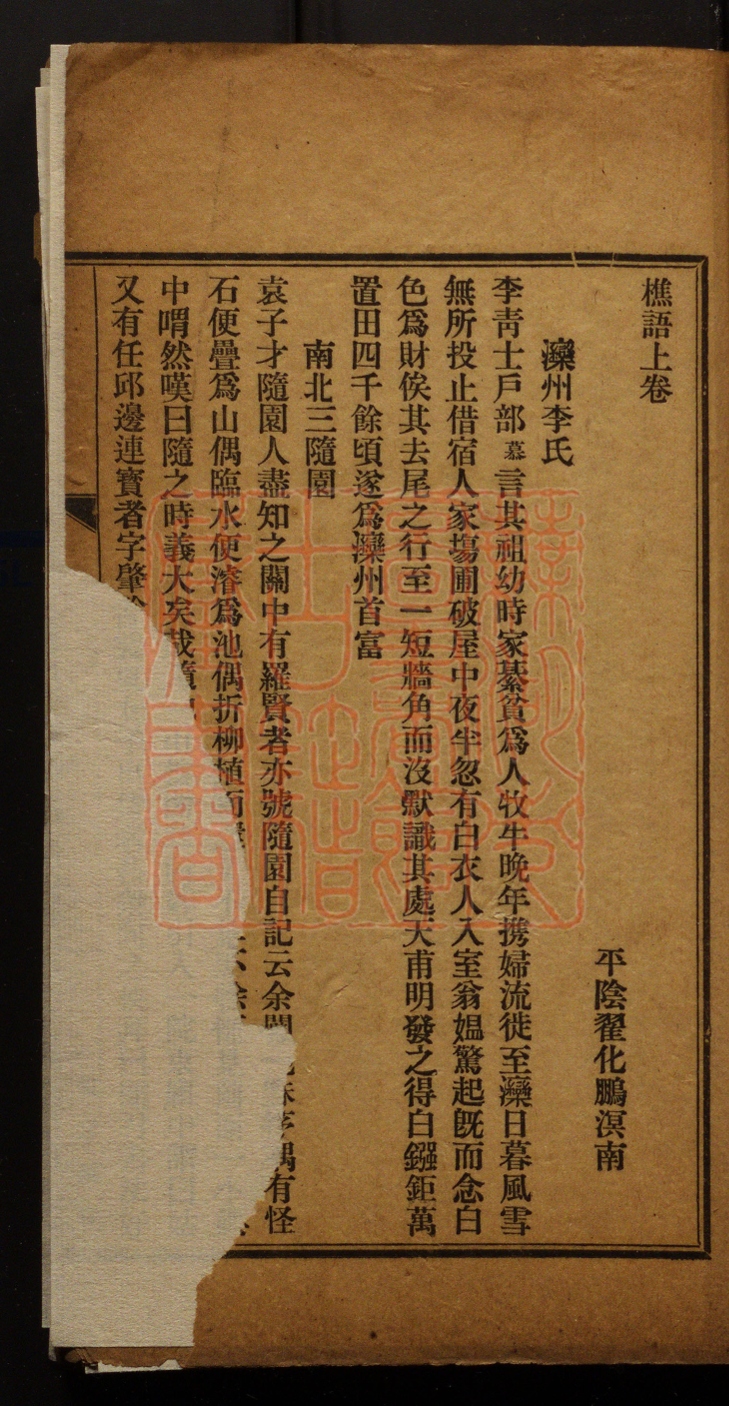 樵語上卷
平陰翟化鵬溟南
灤州李氏
李靑士戶部慕言其祖幼時家綦貧爲人牧牛晚年携婦流徙至灤日暮風雪
無所投止借宿人家塲圃破屋中夜半忽有白衣人入室翁媪驚起旣而念白
色爲財俟其去尾之行至一短牆角而沒默識其處天甫明發之得白鏹鉅萬
置田四千餘頃遂爲灤州首富
南北三隨園
袁子才隨園人盡知之關中有羅賢者亦號隨園自記云余閒偶有怪
石便疊爲山偶臨水便濬爲池偶折柳植而
中喟然嘆曰隨之時義大矣哉隨
又有任邱邊連寶者字肇